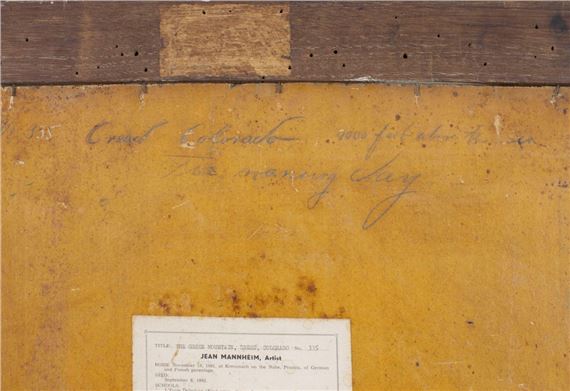 No. 335 Creed Colorado 9000 feet above the sea
The
TITLE: THE GREEN MOUNTAIN, CREED, COLORADO No. 335
JEAN MANNHEIM, Artist
BORN: November 18, 1861, at Kreuznach on the Nahe, Prussia, of German
and French parentage.
DIED:
September 6, 1945
SCHOOLS: